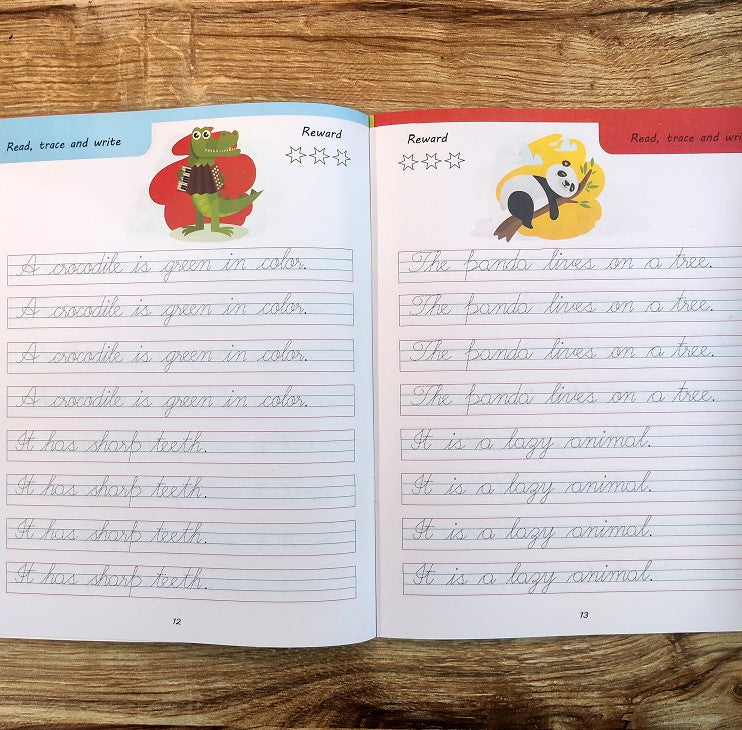 Read, trace and write
Reward
A crocodile is green in color.
A crocodile is green in color.
A crocodile is green in color.
A crocodile is green in color.
It has sharp teeth.
It has sharp teeth.
It has sharp teeth.
It has sharp teeth.
12
Reward
Read, trace and wri
The panda lives on a tree.
The panda lives on a tree.
The panda lives on a tree.
The panda lives on a tree.
It is a lazy animal.
It is a lazy animal.
It is a lazy animal.
It is a lazy animal.
13